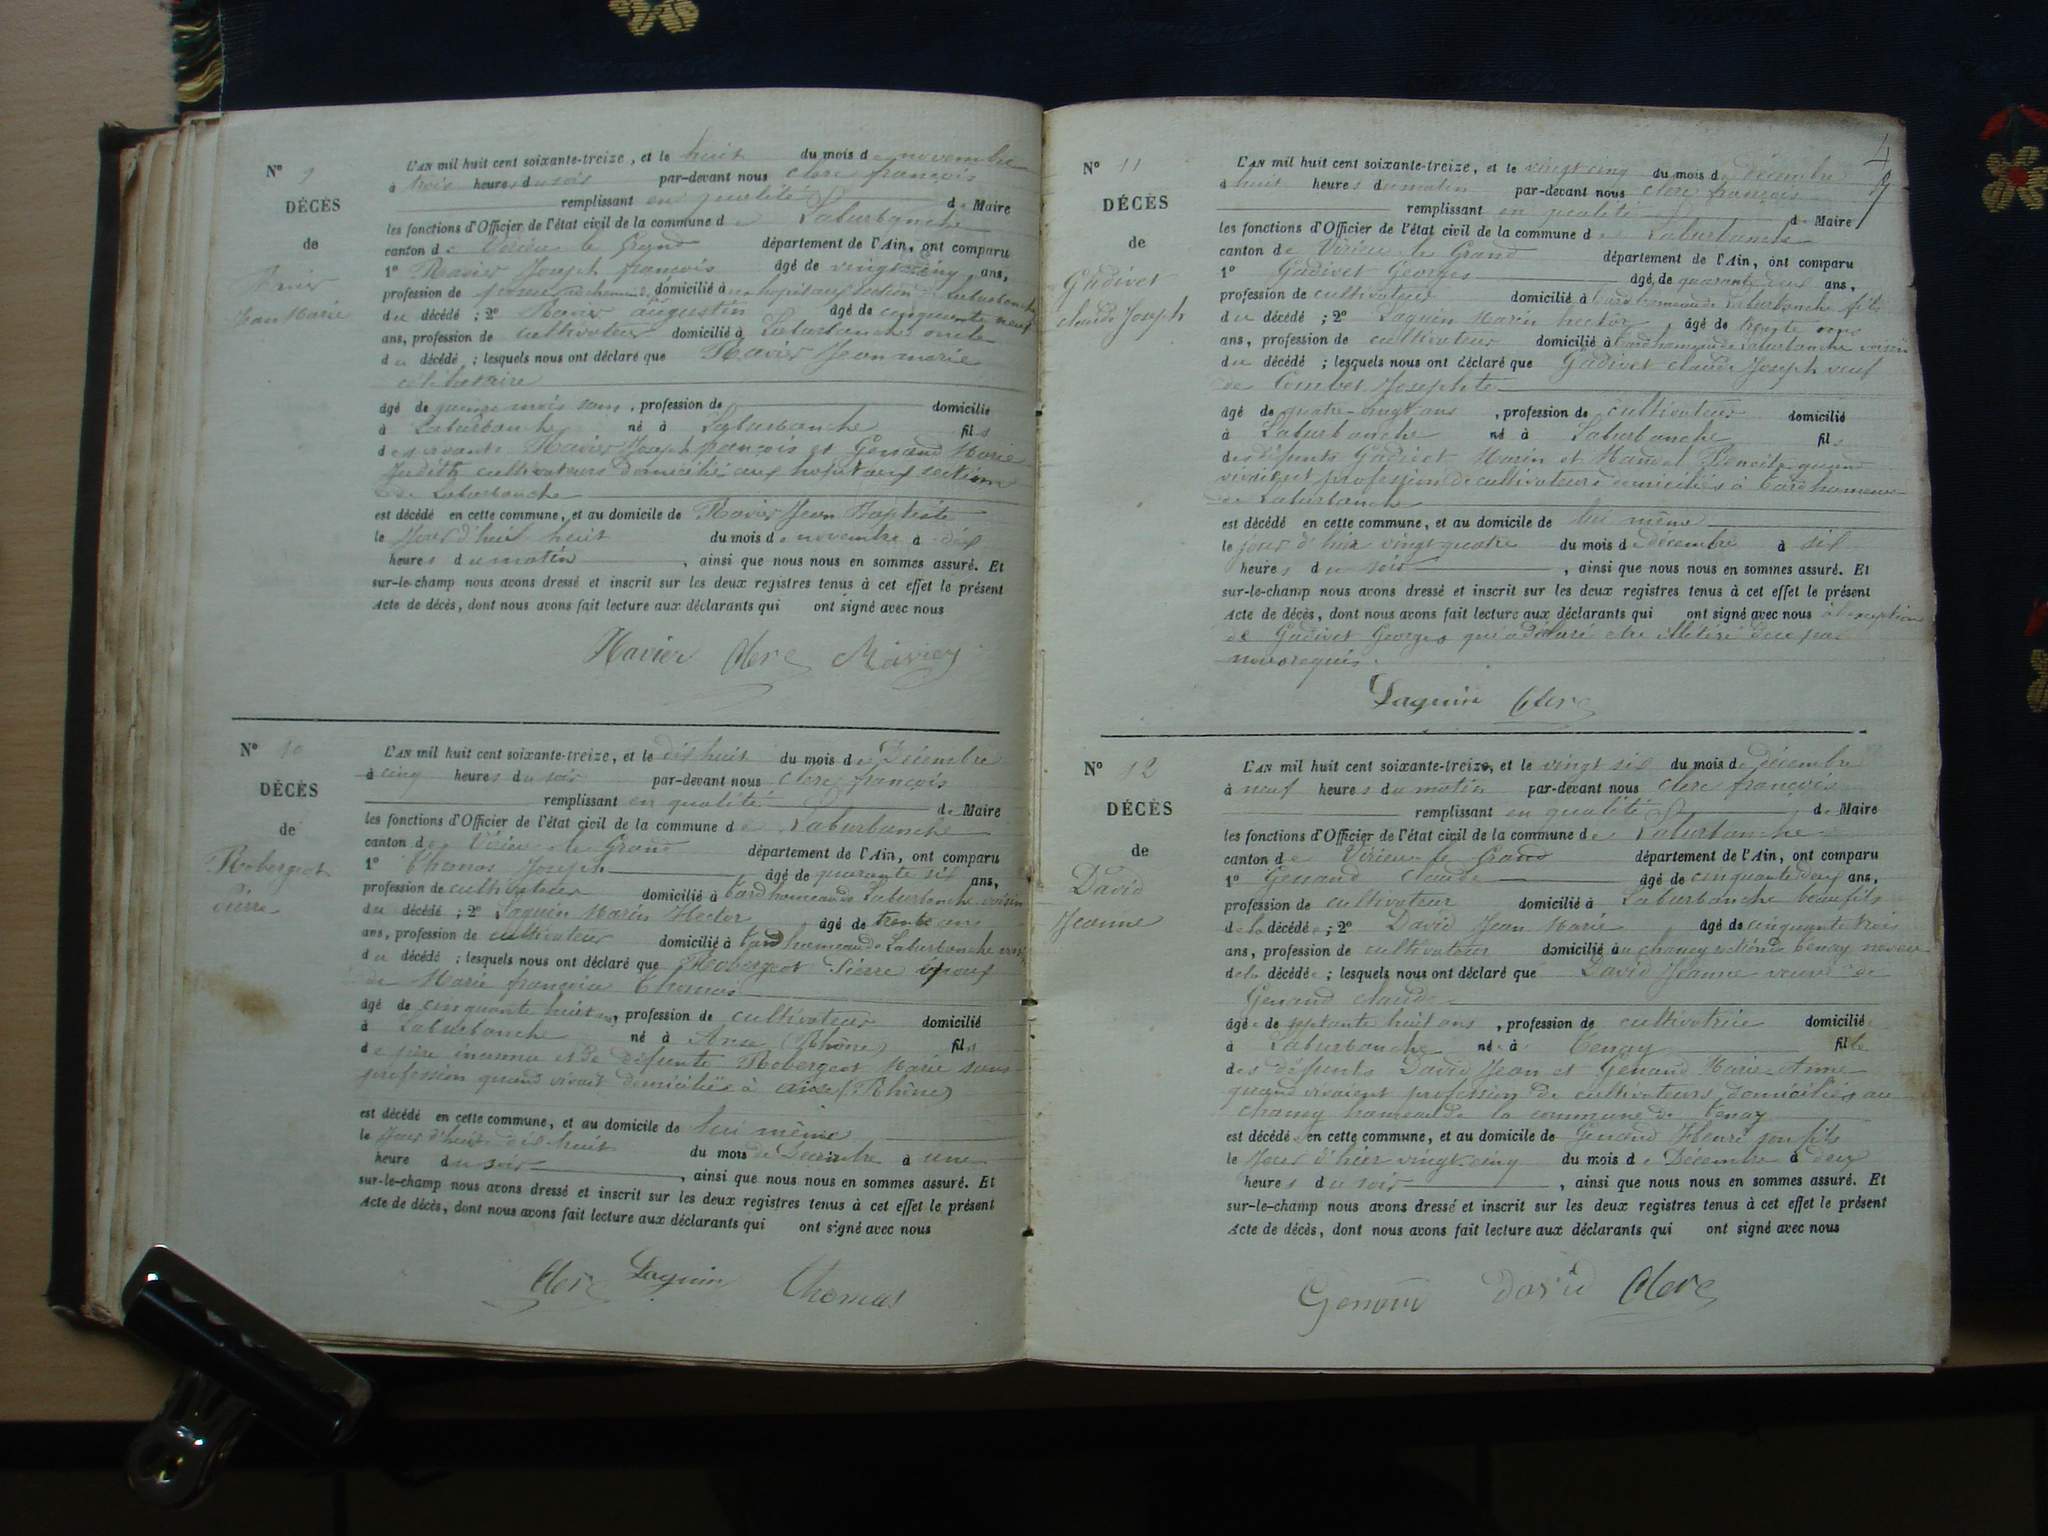 N° 9
DÉCÈS
de
Jean Marie
L'AN mil huit cent soixante-treize, et le huit du mois de novembre
à trois heures du soir par-devant nous Clerc françois
remplissant en qualité de Maire
les fonctions d'Officier de l'état civil de la commune de Laburbanche
canton de Virieu le Grand département de l'Ain, ont comparu
1° Ravier Joseph françois âgé de vingt cinq ans,
profession de domicilié à section Laburbanche
du décédé ; 2° Ravier augustin âgé de cinquante neuf
ans, profession de cultivateur domicilié à Laburbanche oncle
du décédé ; lesquels nous ont déclaré que Ravier Jean marie
célibataire
âgé de quinze mois sans, profession de domicilié
à Laburbanche né à Laburbanche fils
des vivants Ravier Joseph françois et Genand Marie
Judith cultivateurs domicilié aux section
de Laburbanche
est décédé en cette commune, et au domicile de Ravier Jean Baptiste
le Jour d'hui huit du mois de novembre à dix
heures du matin, ainsi que nous nous en sommes assuré. Et
sur-le-champ nous avons dressé et inscrit sur les deux registres tenus à cet effet le présent
Acte de décès, dont nous avons fait lecture aux déclarants qui ont signé avec nous
Ravier Clerc Ravier
N° 10
DÉCÈS
de
Robergeot
Pierre
L'AN mil huit cent soixante-treize, et le dix huit du mois de Décembre
à cinq heures du soir par-devant nous Clerc françois
remplissant en qualité de Maire
les fonctions d'Officier de l'état civil de la commune de Laburbanche
canton de Virieu le Grand département de l'Ain, ont comparu
1° Thomas Joseph âgé de quarante six ans,
profession de cultivateur domicilié à hameau de Laburbanche voisin
du décédé ; 2° Laguin Marin Hector âgé de trente ans
ans, profession de cultivateur domicilié à hameau de Laburbanche
du décédé ; lesquels nous ont déclaré que Robergeot Pierre époux
de Marie françoise Thomas
âgé de cinquante huit ans, profession de cultivateur domicilié
à Laburbanche né à Anse (Rhône) fils
de père inconnu et de défunte Robergeot Marie sans
profession quand vivait domiciliée à anse (Rhône)
est décédé en cette commune, et au domicile de lui même
le Jour d'hui dix huit du mois de Décembre à une
heure du soir, ainsi que nous nous en sommes assuré. Et
sur-le-champ nous avons dressé et inscrit sur les deux registres tenus à cet effet le présent
Acte de décès, dont nous avons fait lecture aux déclarants qui ont signé avec nous
Clerc Laguin Thomas
N° 11
DÉCÈS
de
Gadivet
claude Joseph
L'AN mil huit cent soixante-treize, et le vingt cinq du mois de Décembre
à huit heures du matin par-devant nous Clerc françois
remplissant en qualité de Maire
les fonctions d'Officier de l'état civil de la commune de Laburbanche
canton de Virieu le Grand département de l'Ain, ont comparu
1° Gadivet Georges âgé de quarante deux ans,
profession de cultivateur domicilié à hameau de Laburbanche fils
du décédé ; 2° Laguin Marin hector, âgé de trente
ans, profession de cultivateur domicilié à hameau de Laburbanche voisin
du décédé ; lesquels nous ont déclaré que Gadivet claude Joseph veuf
de Combet Josephte
âgé de quatre-vingt ans, profession de cultivateur domicilié
à Laburbanche né à Laburbanche fils
des défunts Gadivet Marin et quand
vivaient profession de cultivateurs domiciliés à hameau
de Laburbanche
est décédé en cette commune, et au domicile de lui même
le jour d'hier vingt quatre du mois de décembre à six
heures du soir, ainsi que nous nous en sommes assuré. Et
sur-le-champ nous avons dressé et inscrit sur les deux registres tenus à cet effet le présent
Acte de décès, dont nous avons fait lecture aux déclarants qui ont signé avec nous à l'exception
de Gadivet Georges qui a déclaré être illétéré de ce par
nous requis.
Laguin Clerc
N° 12
DÉCÈS
de
David
Jeanne
L'AN mil huit cent soixante-treize, et le vingt six du mois de décembre
à neuf heures du matin par-devant nous Clerc françois
remplissant en qualité de Maire
les fonctions d'Officier de l'état civil de la commune de Laburbanche
canton de Virieu le Grand département de l'Ain, ont comparu
1° Genand Claude âgé de cinquante deux ans,
profession de cultivateur domicilié à Laburbanche beau fils
de la décédée ; 2° David Jean Marie âgé de cinquante trois
ans, profession de cultivateur domicilié au chaney section de Tenay neveu
de la décédée ; lesquels nous ont déclaré que David Jeanne veuve de
Genand claude
âgée de septante huit ans, profession de cultivatrice domicilié
à Laburbanche né à Tenay fille
des défunts David Jean et Genand Marie-Anne
quand vivaient profession de cultivateurs domiciliés au
chaney hameau de la commune de Tenay
est décédé en cette commune, et au domicile de Genand Henri son fils
le Jour d'hier vingt-cinq du mois de Décembre à deux
heures du soir, ainsi que nous nous en sommes assuré. Et
sur-le-champ nous avons dressé et inscrit sur les deux registres tenus à cet effet le présent
Acte de décès, dont nous avons fait lecture aux déclarants qui ont signé avec nous
Genand David Clerc